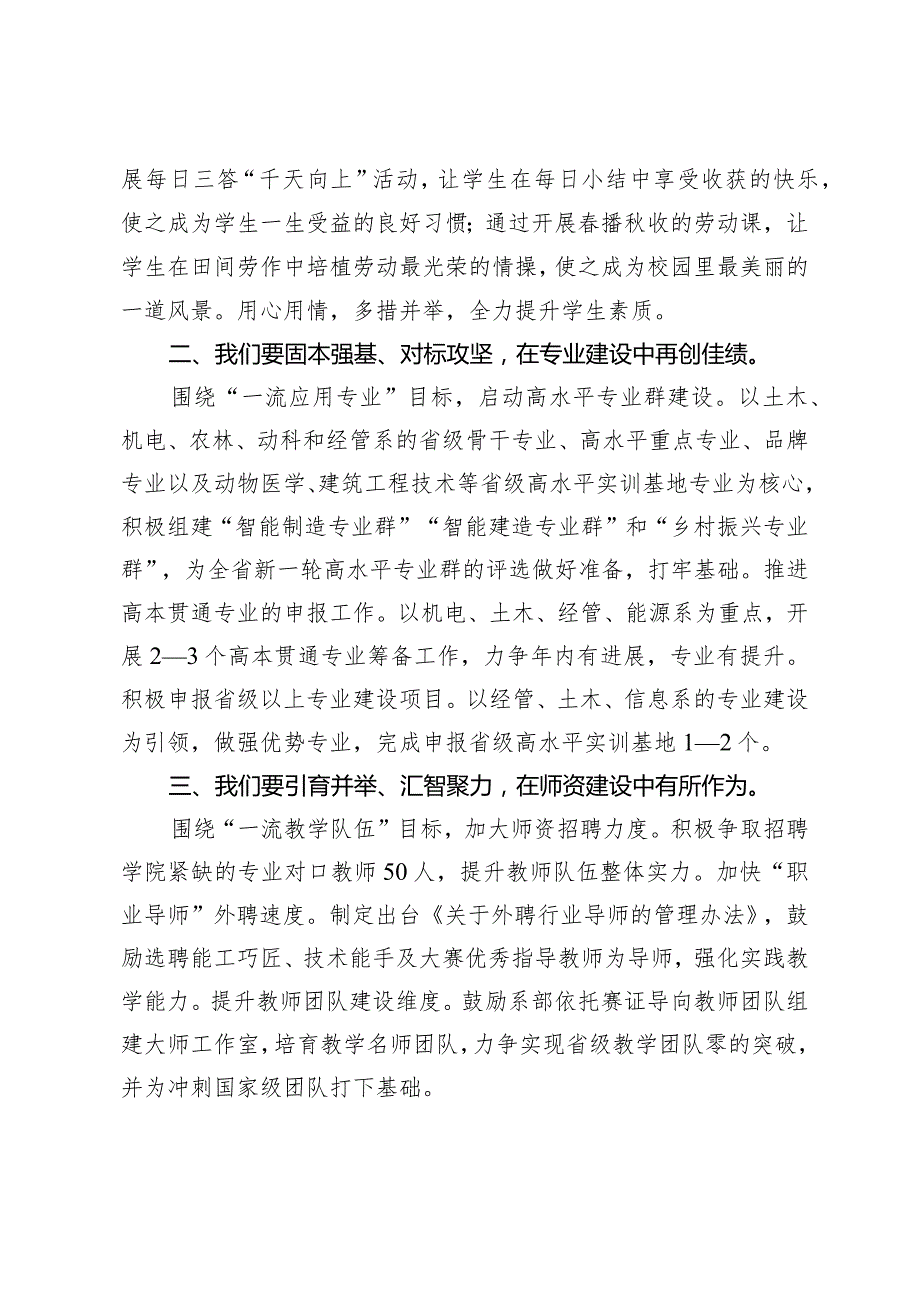 展每日三答“千天向上”活动，让学生在每日小结中享受收获的快乐，
使之成为学生一生受益的良好习惯；通过开展春播秋收的劳动课，让
学生在田间劳作中培植劳动最光荣的情操，使之成为校园里最美丽的
一道风景。用心用情，多措并举，全力提升学生素质。
二、我们要固本强基、对标攻坚，在专业建设中再创佳绩。
围绕“一流应用专业”目标，启动高水平专业群建设。以土木、
机电、农林、动科和经管系的省级骨干专业、高水平重点专业、品牌
专业以及动物医学、建筑工程技术等省级高水平实训基地专业为核心，
积极组建“智能制造专业群”“智能建造专业群”和“乡村振兴专业
群”，为全省新一轮高水平专业群的评选做好准备，打牢基础。推进
高本贯通专业的申报工作。以机电、土木、经管、能源系为重点，开
展2—3个高本贯通专业筹备工作，力争年内有进展，专业有提升。
积极申报省级以上专业建设项目。以经管、土木、信息系的专业建设
为引领，做强优势专业，完成申报省级高水平实训基地1—2个。
三、我们要引育并举、汇智聚力，在师资建设中有所作为。
围绕“一流教学队伍”目标，加大师资招聘力度。积极争取招聘
学院紧缺的专业对口教师50人，提升教师队伍整体实力。加快“职
业导师”外聘速度。制定出台《关于外聘行业导师的管理办法》，鼓
励选聘能工巧匠、技术能手及大赛优秀指导教师为导师，强化实践教
学能力。提升教师团队建设维度。鼓励系部依托赛证导向教师团队组
建大师工作室，培育教学名师团队，力争实现省级教学团队零的突破，
并为冲刺国家级团队打下基础。